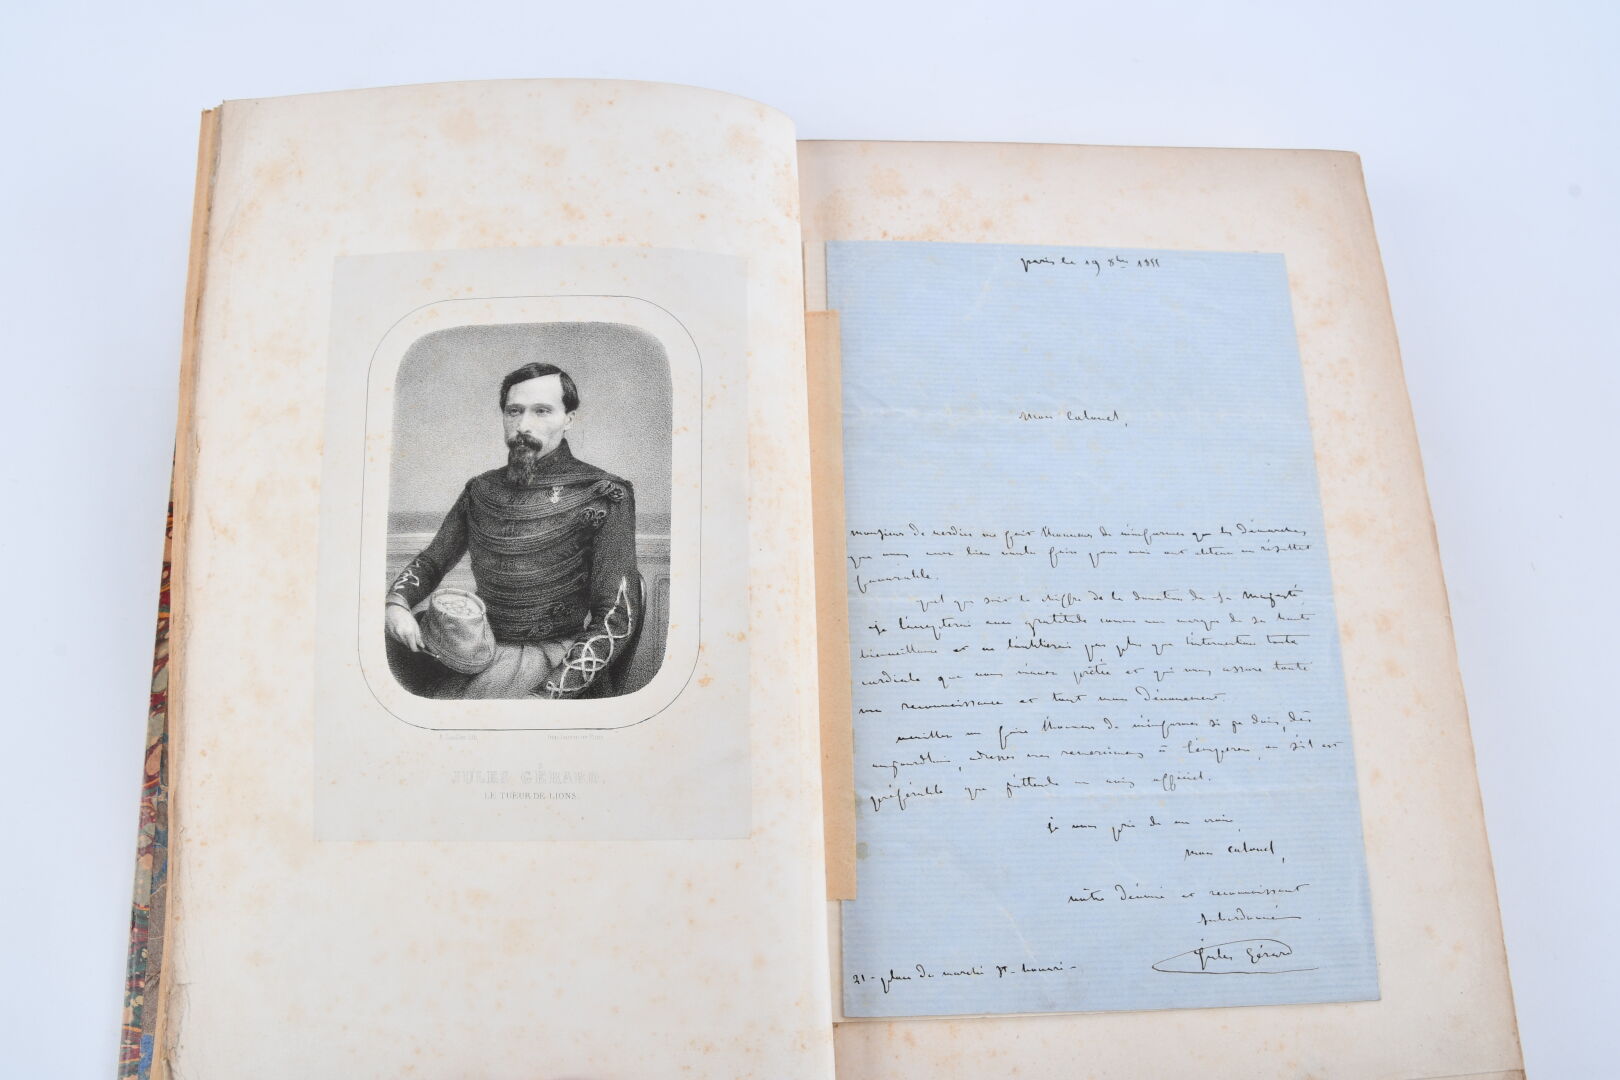 JULES GÉRARD,
LE TUEUR DE LIONS.
paris le 19 8bre 1855
mon colonel,
monsieur de me fait l'honneur de m'informer que les démarches
que vous avez bien voulu faire pour moi ont obtenu un résultat
favorable.
quel que soit le chiffre de la donation de sa majesté
je l'accepterai avec gratitude comme une marque de sa haute
bienveillance et n'oublierai pas plus que l'intervention toute
cordiale que vous m'avez prêtée et qui vous assure toute
ma reconnaissance et tout mon dévouement.
veuillez me faire l'honneur de m'informer si je dois, dès
aujourd'hui, adresser mes remerciements à l'empereur, ou s'il est
préférable que j'attende un avis officiel.
je vous prie de me croire,
mon colonel,
votre dévoué et reconnaissant
subordonné
Jules Gérard
21 - place du marché St-honoré -